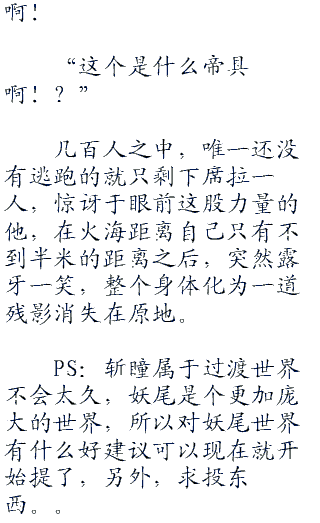 啊！
“这个是什么帝具
啊！？”
几百人之中，唯一还没
有逃跑的就只剩下席拉一
人，惊讶于眼前这股力量的
他，在火海距离自己只有不
到半米的距离之后，突然露
牙一笑，整个身体化为一道
残影消失在原地。
PS：斩瞳属于过渡世界
不会太久，妖尾是个更加庞
大的世界，所以对妖尾世界
有什么好建议可以现在就开
始提了，另外，求投东
西。。